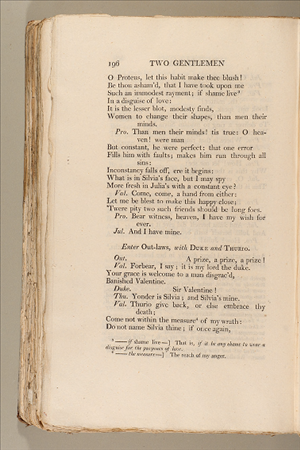 196 TWO GENTLEMEN
O Proteus, let this habit make thee blush!
Be thou asham'd, that I have took upon me
Such an immodest rayment; if shame live³
In a disguise of love:
It is the lesser blot, modesty finds,
Women to change their shapes, than men their
minds.
Pro. Than men their minds! tis true: O hea-
ven! were man
But constant, he were perfect: that one error
Fills him with faults; makes him run through all
sins:
Inconstancy falls off, ere it begins:
What is in Silvia's face, but I may spy
More fresh in Julia's with a constant eye?
Val. Come, come, a hand from either:
Let me be blest to make this happy close;
'Twere pity two such friends should be long foes.
Pro. Bear witness, heaven, I have my wish for
ever.
Jul. And I have mine.
Enter Out-laws, with DUKE and THURIO.
Out. A prize, a prize, a prize!
Val. Forbear, I say; it is my lord the duke.
Your grace is welcome to a man disgrac'd,
Banished Valentine.
Duke. Sir Valentine!
Thu. Yonder is Silvia; and Silvia's mine.
Val. Thurio give back, or else embrace thy
death;
Come not within the measure⁴ of my wrath:
Do not name Silvia thine; if once again,
³ —— if shame live—] That is, if it be any shame to wear a
disguise for the purposes of love.
⁴ —— the measure—] The reach of my anger.